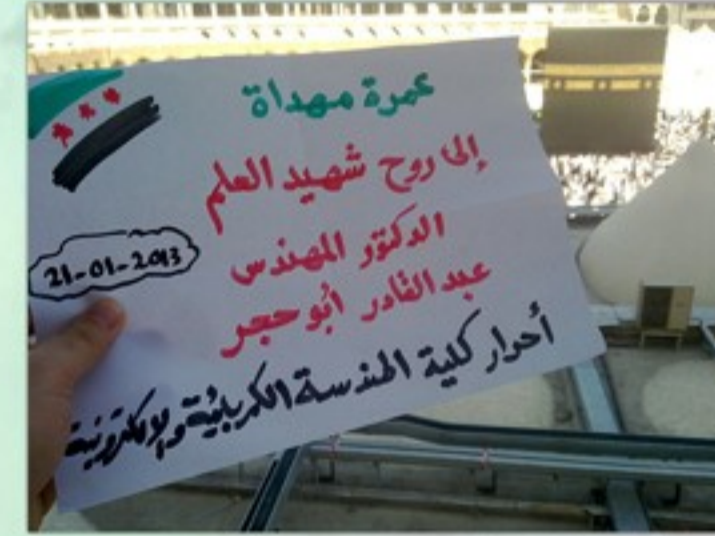 عمرة مهداة
إلى روح شهيد العلم
الدكتور المهندس
عبد القادر أبو حجر
21-01-2013
أحرار كلية الهندسة الكهربائية والإلكترونية